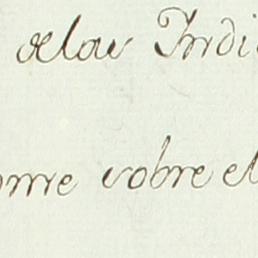 de las Indi
orme sobre el